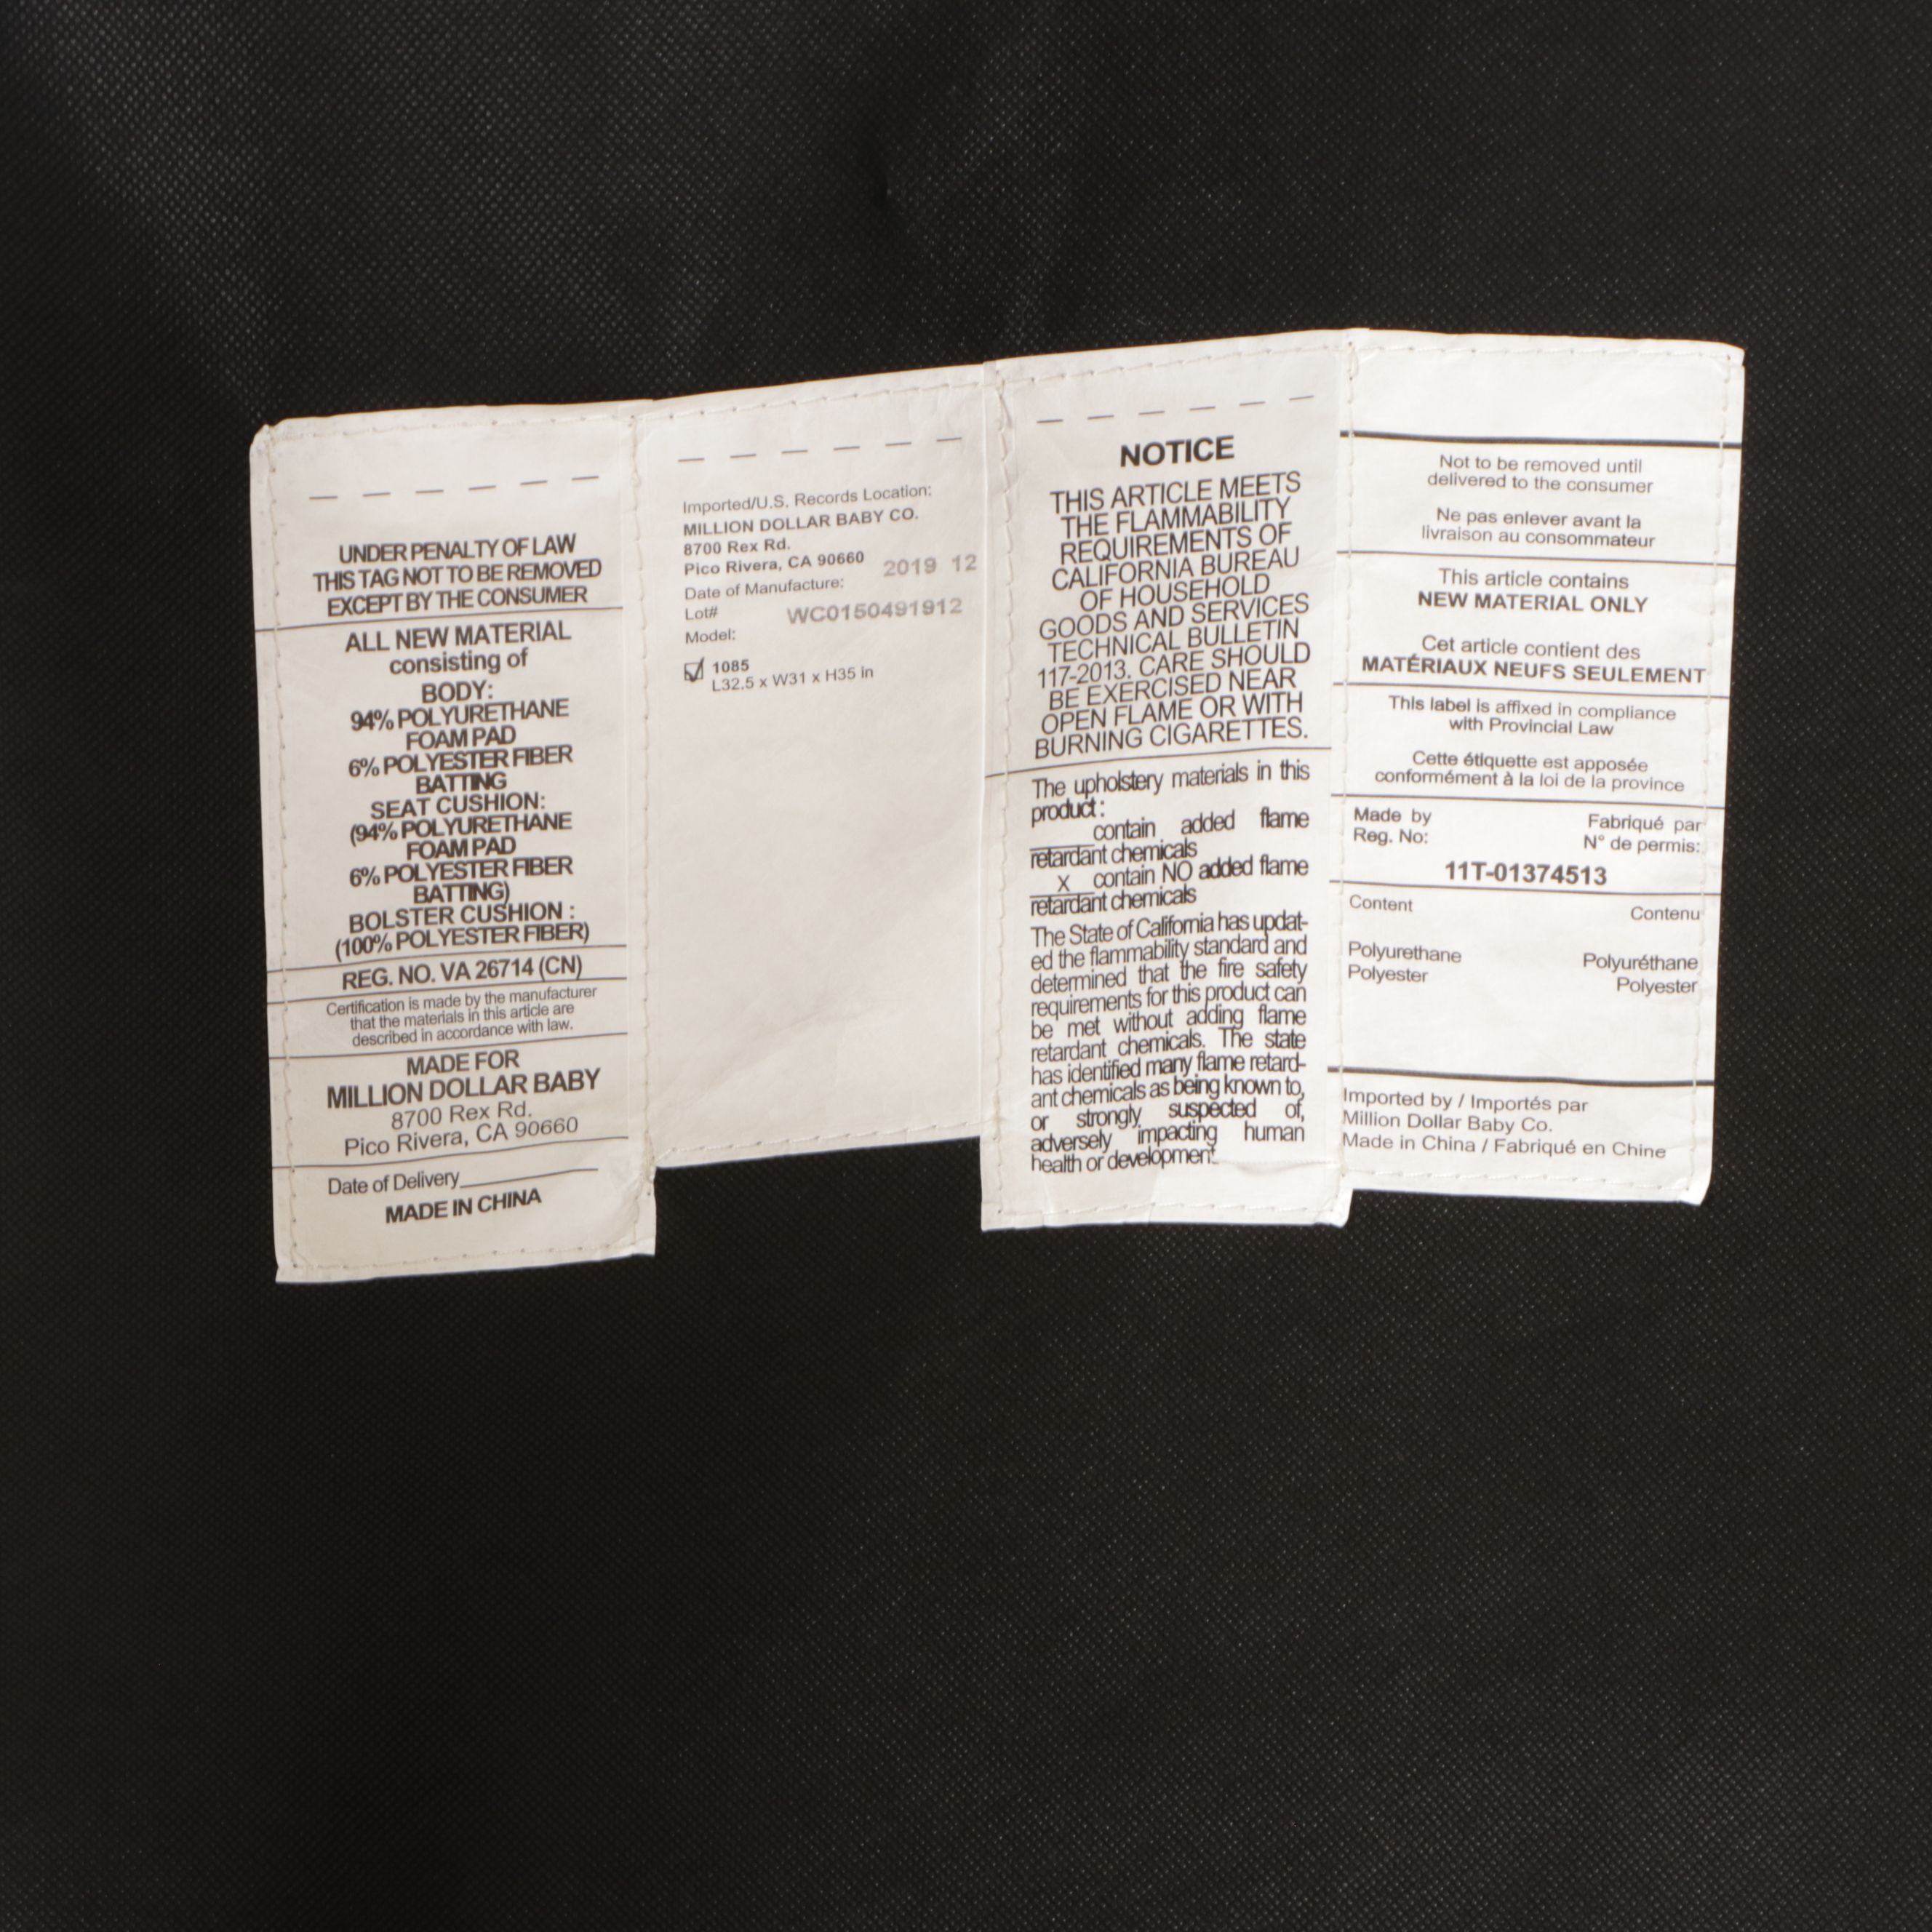 UNDER PENALTY OF LAW
THIS TAG NOT TO BE REMOVED
EXCEPT BY THE CONSUMER
ALL NEW MATERIAL
consisting of
BODY:
94% POLYURETHANE
FOAM PAD
6% POLYESTER FIBER
BATTING
SEAT CUSHION:
(94% POLYURETHANE
FOAM PAD
6% POLYESTER FIBER
BATTING)
BOLSTER CUSHION :
(100% POLYESTER FIBER)
REG. NO. VA 26714 (CN)
Certification is made by the manufacturer
that the materials in this article are
described in accordance with law.
MADE FOR
MILLION DOLLAR BABY
8700 Rex Rd.
Pico Rivera, CA 90660
Date of Delivery
MADE IN CHINA
Imported/U.S. Records Location:
MILLION DOLLAR BABY CO.
8700 Rex Rd.
Pico Rivera, CA 90660
Date of Manufacture: 2019 12
Lot# WC0150491912
Model:
1085
L32.5 x W31 x H35 in
NOTICE
THIS ARTICLE MEETS
THE FLAMMABILITY
REQUIREMENTS OF
CALIFORNIA BUREAU
OF HOUSEHOLD
GOODS AND SERVICES
TECHNICAL BULLETIN
117-2013. CARE SHOULD
BE EXERCISED NEAR
OPEN FLAME OR WITH
BURNING CIGARETTES.
The upholstery materials in this
product :
contain added flame
retardant chemicals
X contain NO added flame
retardant chemicals
The State of California has updat-
ed the flammability standard and
determined that the fire safety
requirements for this product can
be met without adding flame
retardant chemicals. The state
has identified many flame retard-
ant chemicals as being known to,
or strongly suspected of,
adversely impacting human
health or development.
Not to be removed until
delivered to the consumer
Ne pas enlever avant la
livraison au consommateur
This article contains
NEW MATERIAL ONLY
Cet article contient des
MATÉRIAUX NEUFS SEULEMENT
This label is affixed in compliance
with Provincial Law
Cette étiquette est apposée
conformément à la loi de la province
Made by Fabriqué par
Reg. No: N° de permis:
11T-01374513
Content Contenu
Polyurethane Polyuréthane
Polyester Polyester
Imported by / Importés par
Million Dollar Baby Co.
Made in China / Fabriqué en Chine